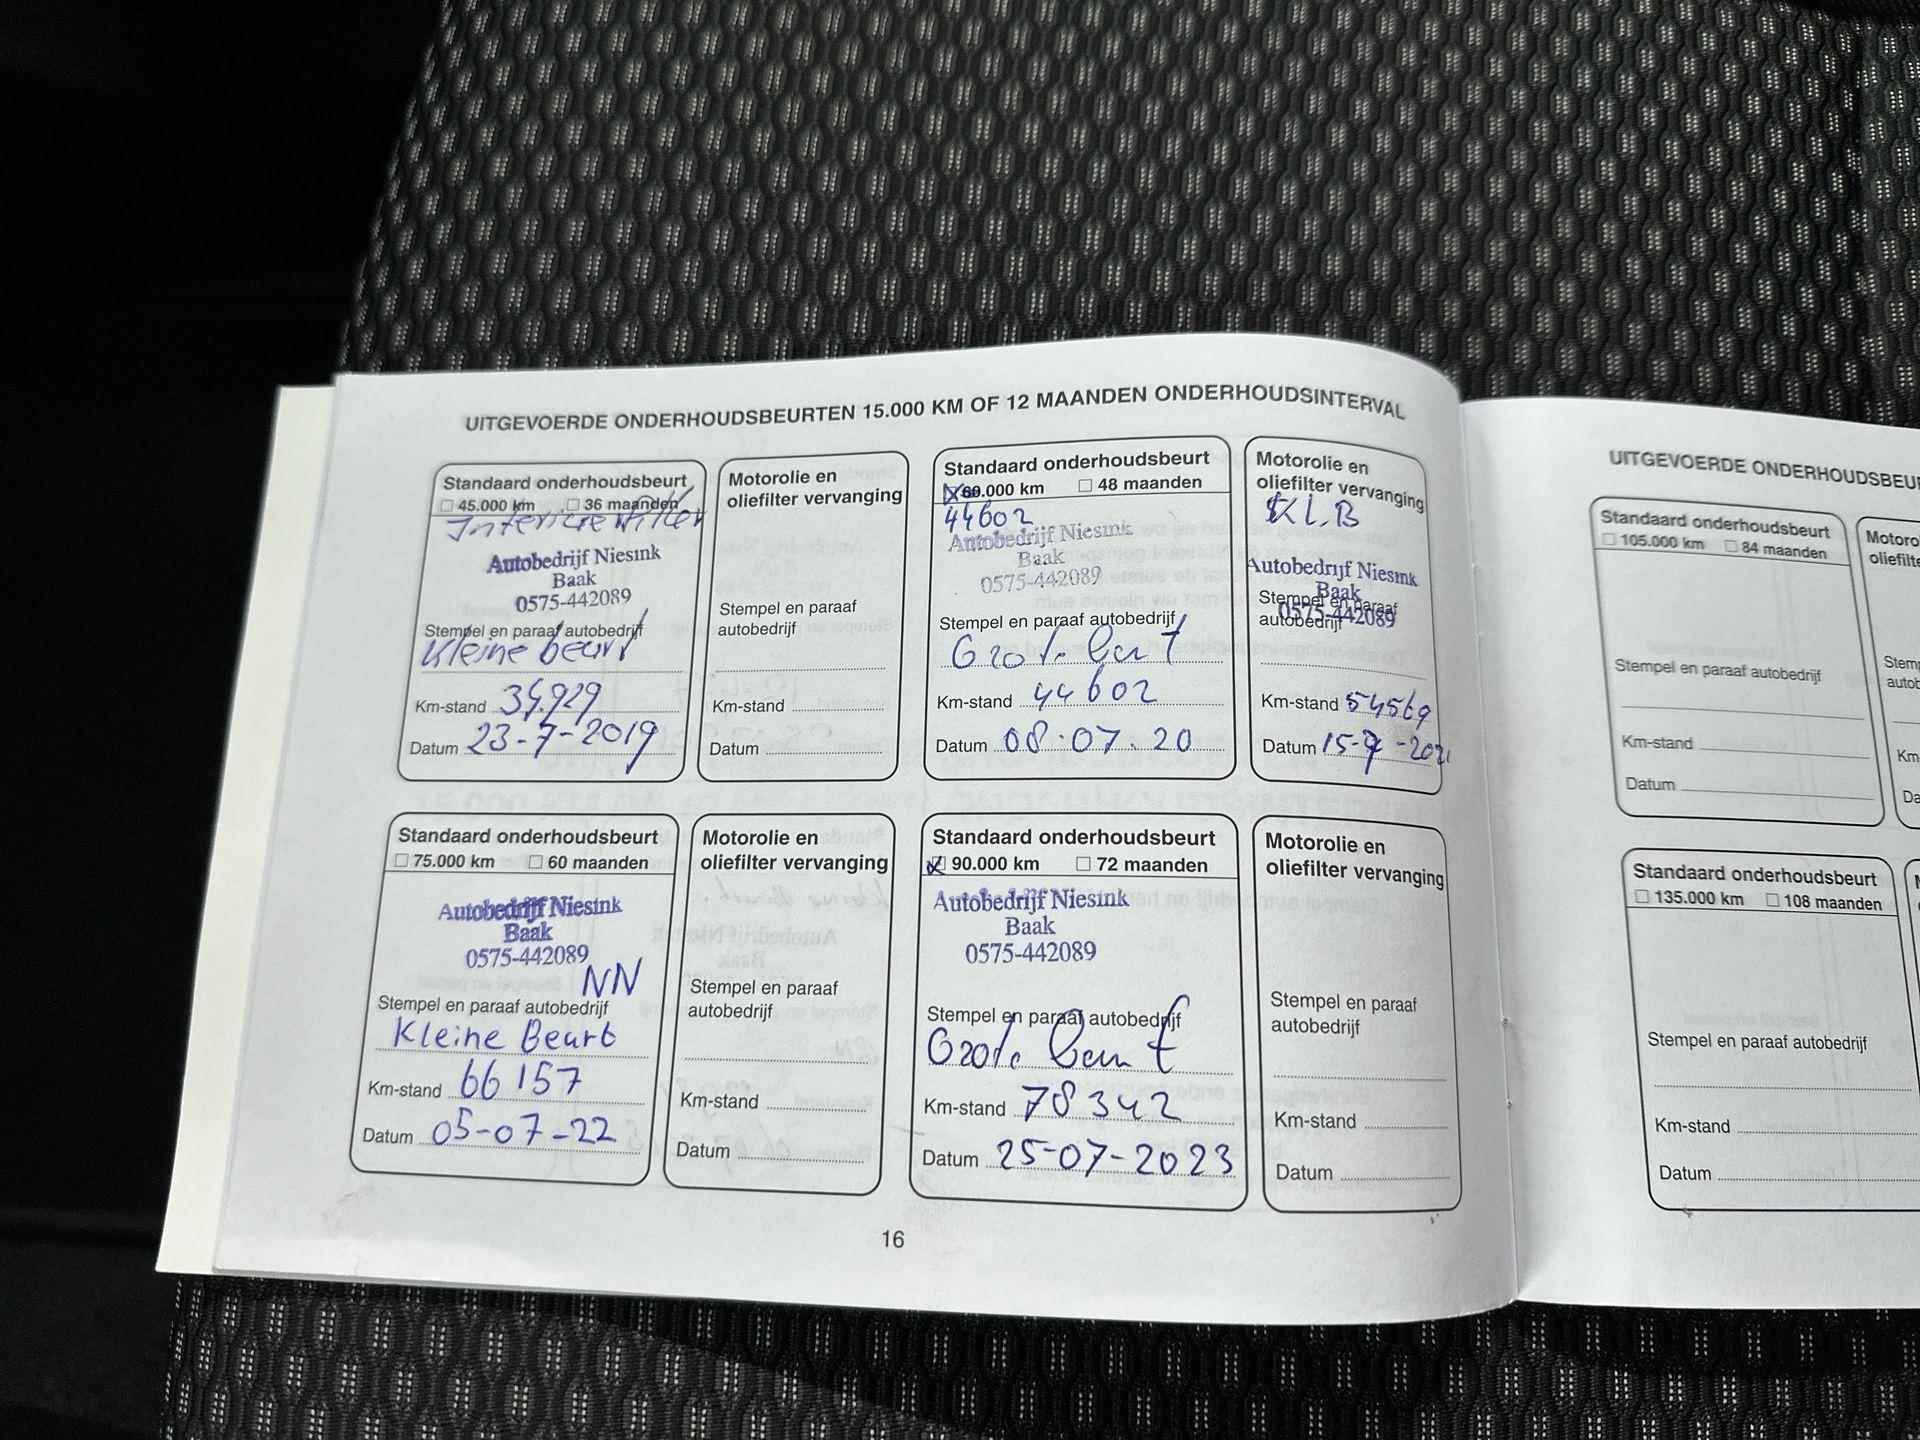 UITGEVOERDE ONDERHOUDSBEURTEN 15.000 KM OF 12 MAANDEN ONDERHOUDSINTERVAL
Standaard onderhoudsbeurt
☐ 45.000 km ☐ 36 maanden
Autobedrijf Niesink
Baak
0575-442089
Stempel en paraaf autobedrijf
Kleine beurt
Km-stand
Datum 23-7-2019
Motorolie en
oliefilter vervanging
Stempel en paraaf
autobedrijf
Km-stand
Datum
Standaard onderhoudsbeurt
☒ 60.000 km ☐ 48 maanden
44602
Autobedrijf Niesink
Baak
0575-442089
Stempel en paraaf autobedrijf
Grote beurt
Km-stand 44602
Datum 08.07.20
Motorolie en
oliefilter vervanging
KLB
Autobedrijf Niesink
Baak
Stempel en paraaf
0575-442089
autobedrijf
Km-stand 54569
Datum
Standaard onderhoudsbeurt
☐ 75.000 km ☐ 60 maanden
Autobedrijf Niesink
Baak
0575-442089
NN
Stempel en paraaf autobedrijf
Kleine Beurt
Km-stand 66157
Datum 05-07-22
Motorolie en
oliefilter vervanging
Stempel en paraaf
autobedrijf
Km-stand
Datum
Standaard onderhoudsbeurt
☒ 90.000 km ☐ 72 maanden
Autobedrijf Niesink
Baak
0575-442089
Stempel en paraaf autobedrijf
Grote beurt
Km-stand 78342
Datum 25-07-2023
Motorolie en
oliefilter vervanging
Stempel en paraaf
autobedrijf
Km-stand
Datum
16
UITGEVOERDE ONDERHOUDSBEU
Standaard onderhoudsbeurt
☐ 105.000 km ☐ 84 maanden
Stempel en paraaf autobedrijf
Km-stand
Datum
Motoro
oliefilte
Stemp
autob
Km-
Da
Standaard onderhoudsbeurt
☐ 135.000 km ☐ 108 maanden
Stempel en paraaf autobedrijf
Km-stand
Datum